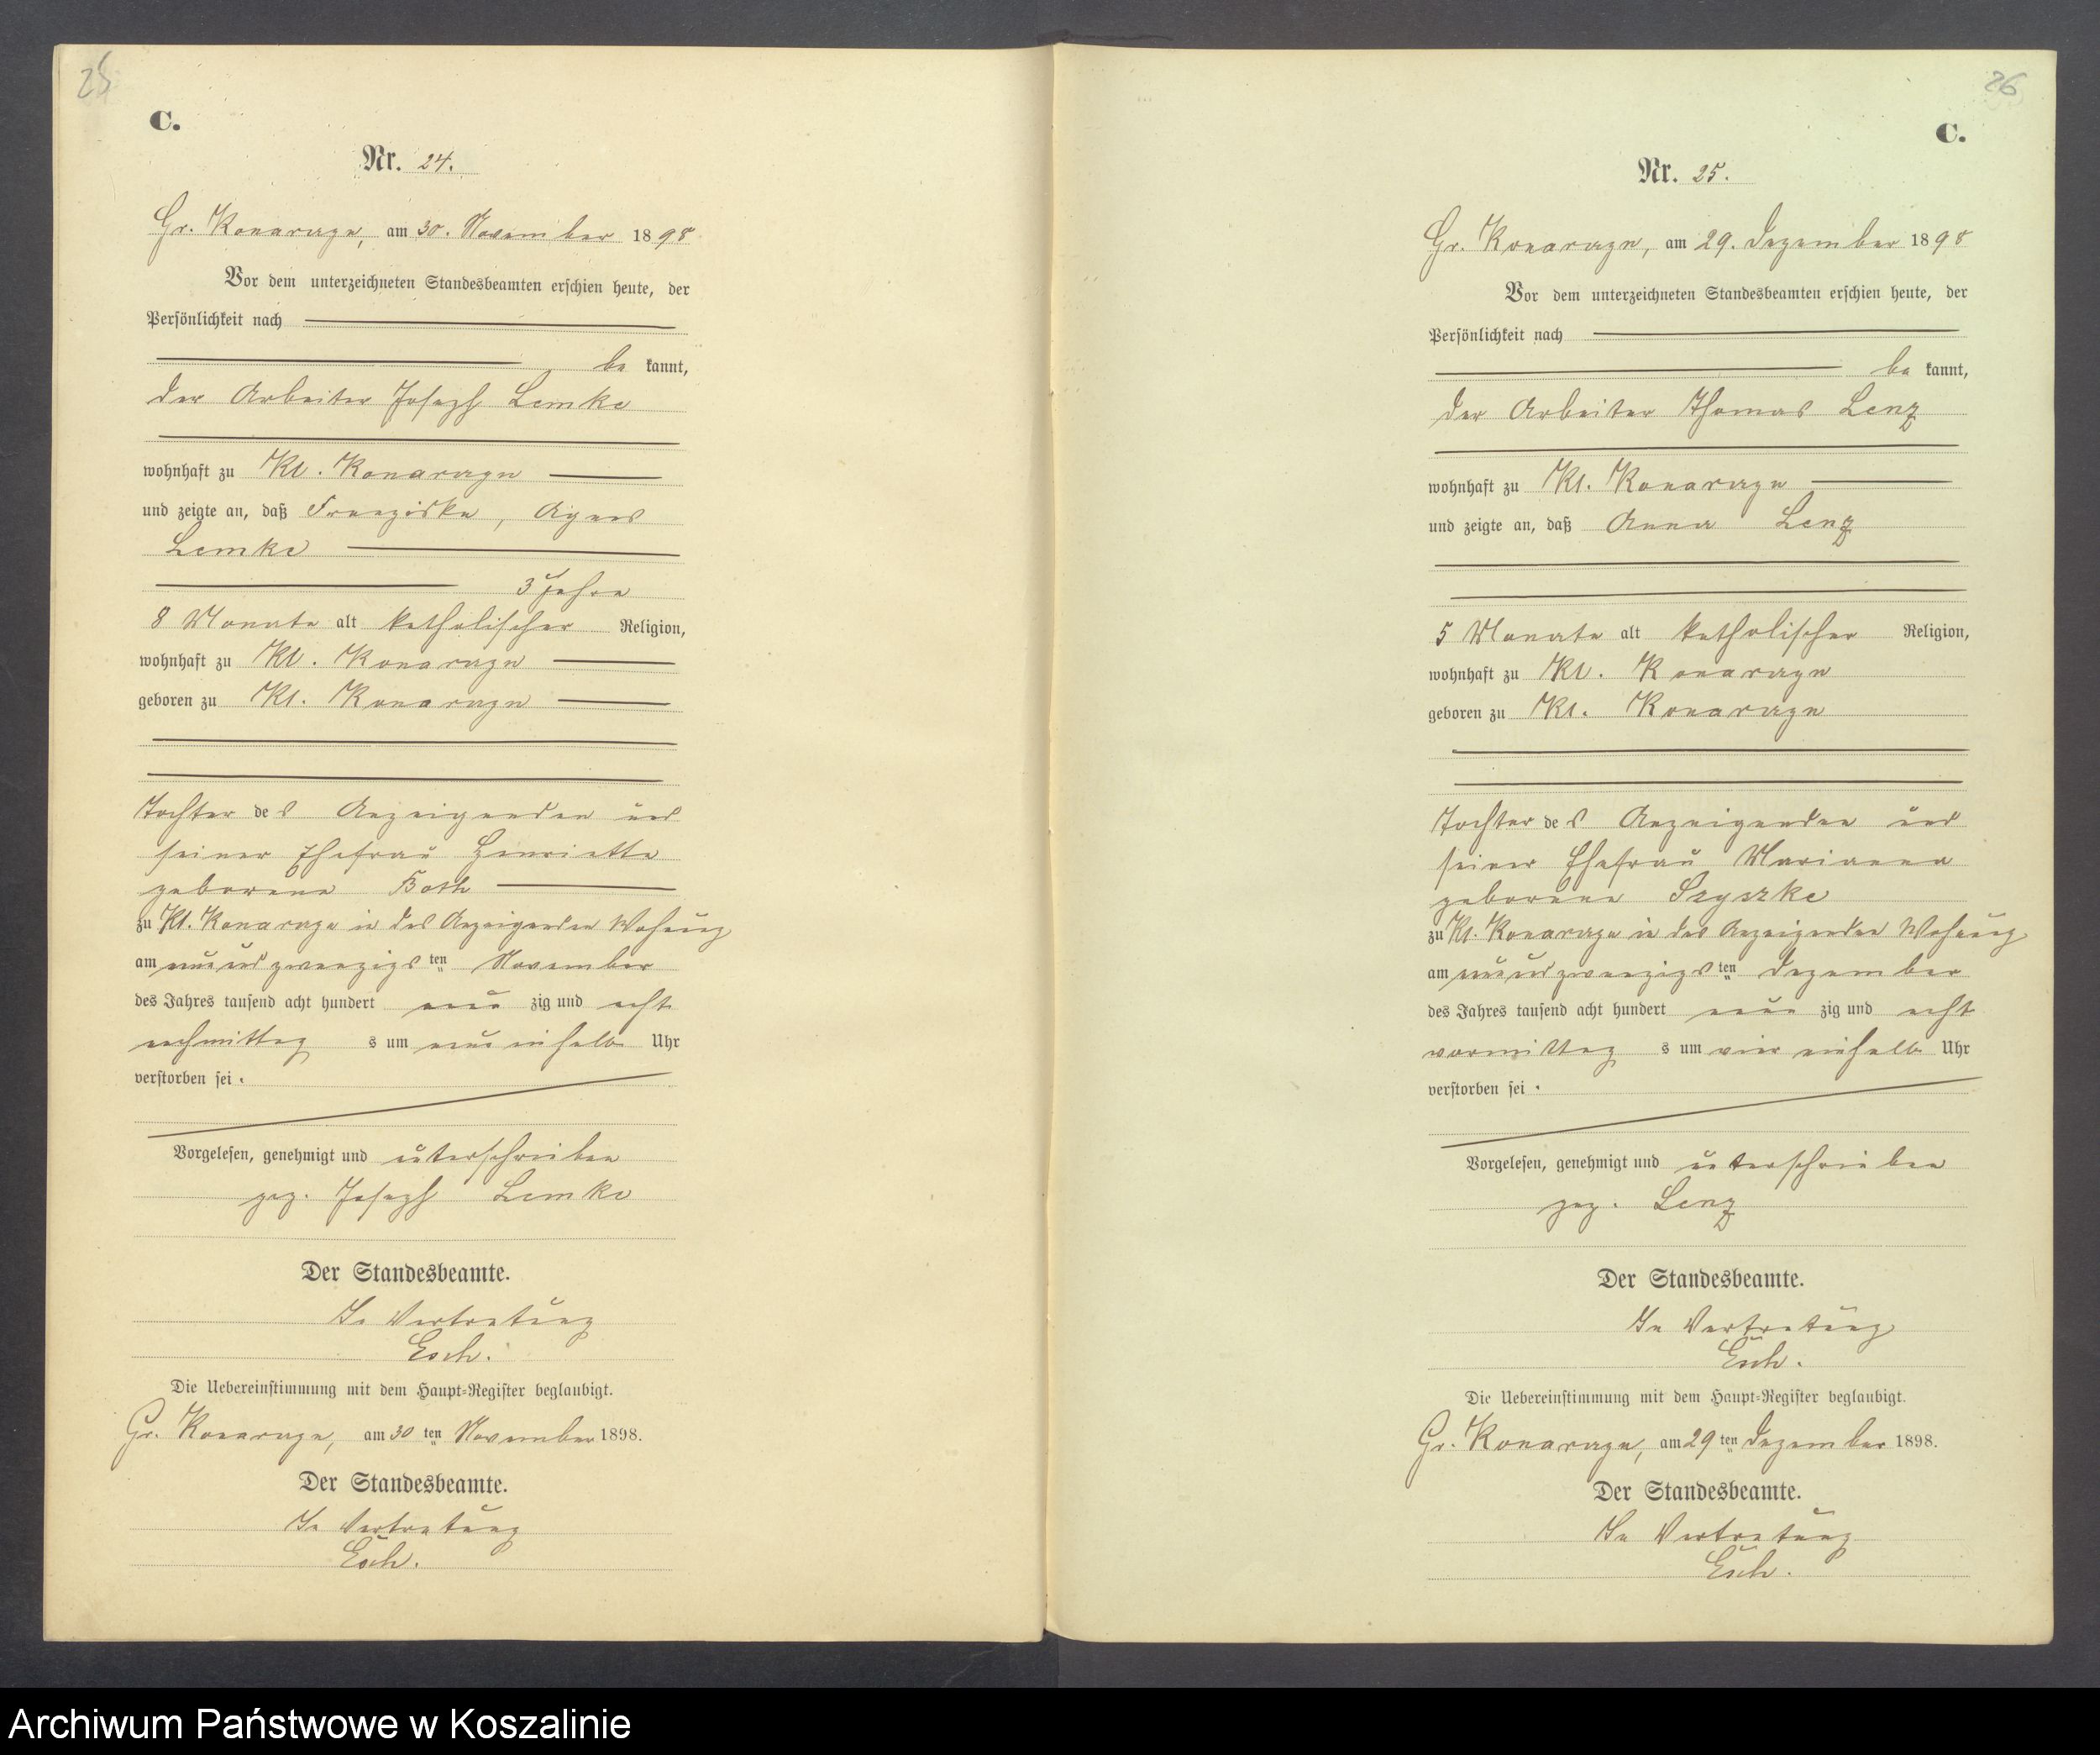 25
C.
Nr. 24.
Gr. Konarzyn, am 30. November 1898
Vor dem unterzeichneten Standesbeamten erschien heute, der
Persönlichkeit nach
be kannt,
der Arbeiter Joseph Lemke
wohnhaft zu Kl. Konarzyn
und zeigte an, daß Franziska, Agnes
Lemke
3 Jahre
8 Monate alt katholischer Religion,
wohnhaft zu Kl. Konarzyn
geboren zu Kl. Konarzyn
Tochter des Anzeigenden und
seiner Ehefrau Henriette
geborene Both
zu Kl. Konarzyn in des Anzeigenden Wohnung
am neunundzwanzigsten November
des Jahres tausend acht hundert neun zig und acht
nachmittag s um neun einhalb Uhr
verstorben sei.
Vorgelesen, genehmigt und unterschrieben
gez. Joseph Lemke
Der Standesbeamte.
In Vertretung
Esch.
Die Uebereinstimmung mit dem Haupt-Register beglaubigt.
Gr. Konarzyn, am 30 ten November 1898.
Der Standesbeamte.
In Vertretung
Esch.
26
C.
Nr. 25.
Gr. Konarzyn, am 29. Dezember 1898
Vor dem unterzeichneten Standesbeamten erschien heute, der
Persönlichkeit nach
be kannt,
der Arbeiter Thomas Lenz
wohnhaft zu Kl. Konarzyn
und zeigte an, daß Anna Lenz
5 Monate alt katholischer Religion,
wohnhaft zu Kl. Konarzyn
geboren zu Kl. Konarzyn
Tochter des Anzeigenden und
seiner Ehefrau Marianna
geborene Szyszke
zu Kl. Konarzyn in des Anzeigenden Wohnung
am neunundzwanzigsten Dezember
des Jahres tausend acht hundert neun zig und acht
vormittag s um vier einhalb Uhr
verstorben sei.
Vorgelesen, genehmigt und unterschrieben
gez. Lenz
Der Standesbeamte.
In Vertretung
Esch.
Die Uebereinstimmung mit dem Haupt-Register beglaubigt.
Gr. Konarzyn, am 29 ten Dezember 1898.
Der Standesbeamte.
In Vertretung
Esch.
Archiwum Państwowe w Koszalinie